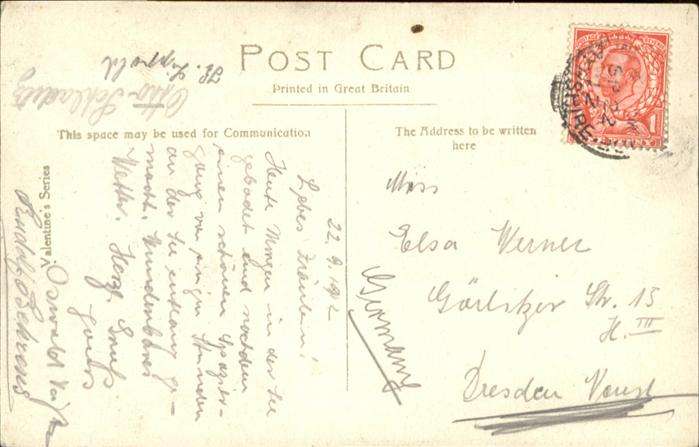 POST CARD
Printed in Great Britain
This space may be used for Communication
The Address to be written
here
Valentine's Series
22. 9. 1912
Liebes Fräulein!
Heute Morgen in der See
gebadet und nachdem
einen schönen Spazier-
gang von einigen Stunden
an der See entlang ge-
macht. Wunderbares
Wetter. Herzl. Gruß
Oswald
Rudolf Behrens
Otto Schladitz
Lippold
Miss
Elsa Werner
Görlitzer Str. 15
H. III
Dresden Neust
Germany